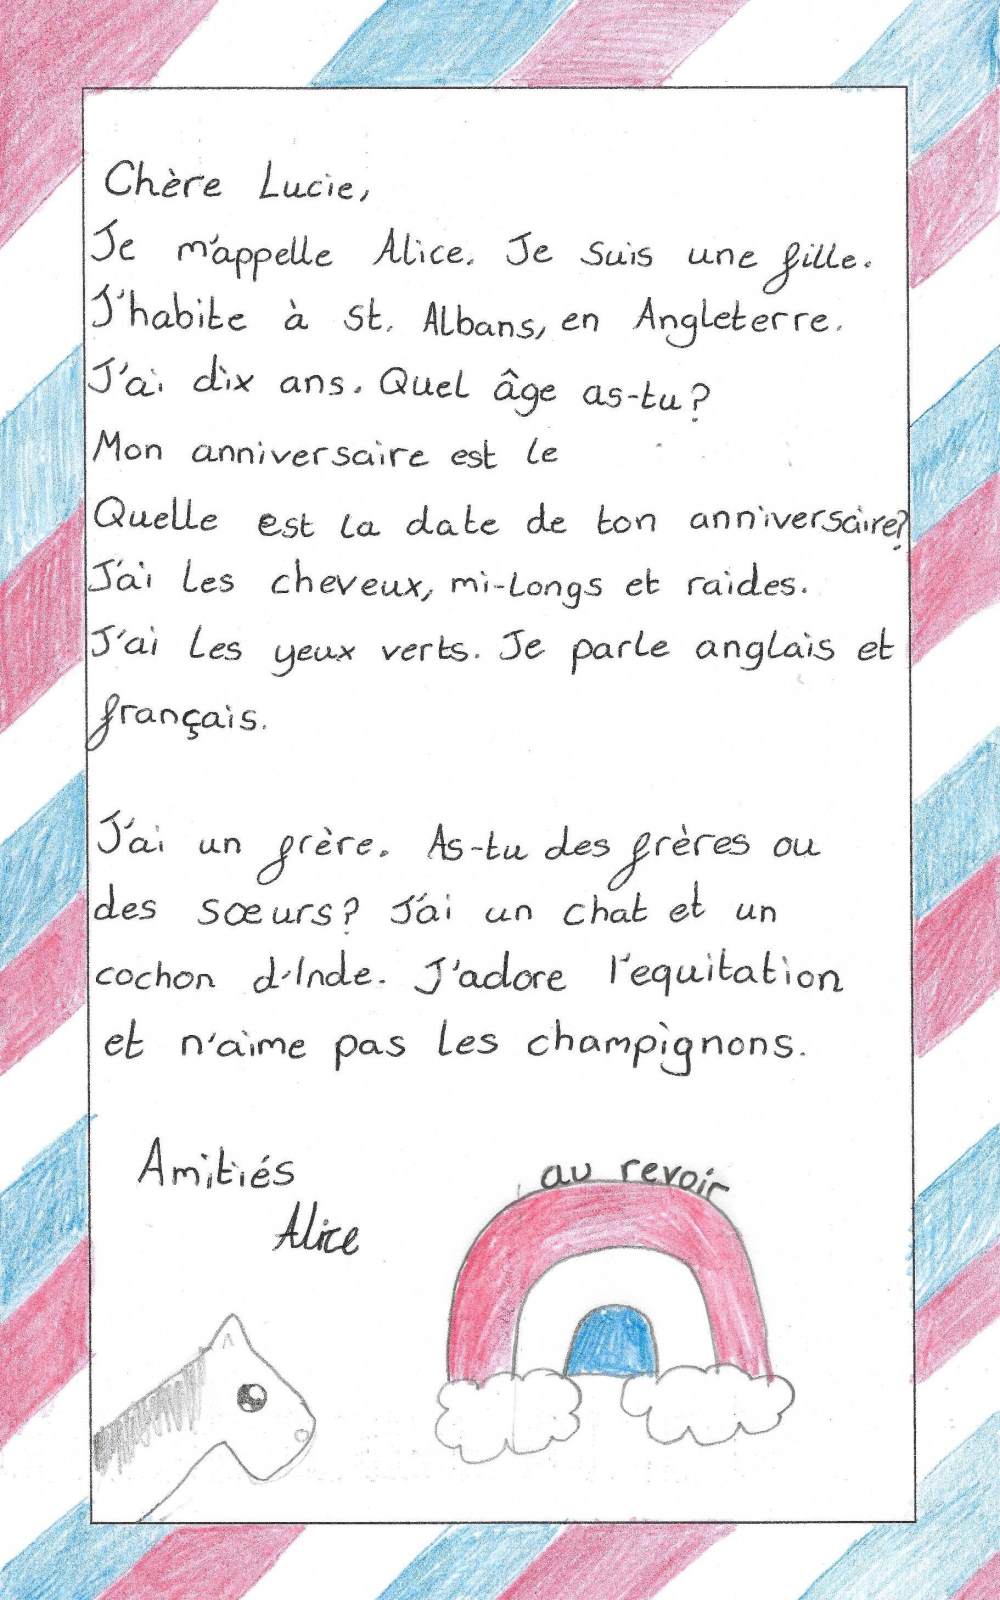 Chère Lucie,
Je m'appelle Alice. Je suis une fille.
J'habite à St. Albans, en Angleterre.
J'ai dix ans. Quel âge as-tu?
Mon anniversaire est le
Quelle est la date de ton anniversaire?
J'ai les cheveux, mi-longs et raides.
J'ai les yeux verts. Je parle anglais et
français.
J'ai un frère. As-tu des frères ou
des sœurs? J'ai un chat et un
cochon d'Inde. J'adore l'equitation
et n'aime pas les champignons.
Amitiés
Alice
au revoir